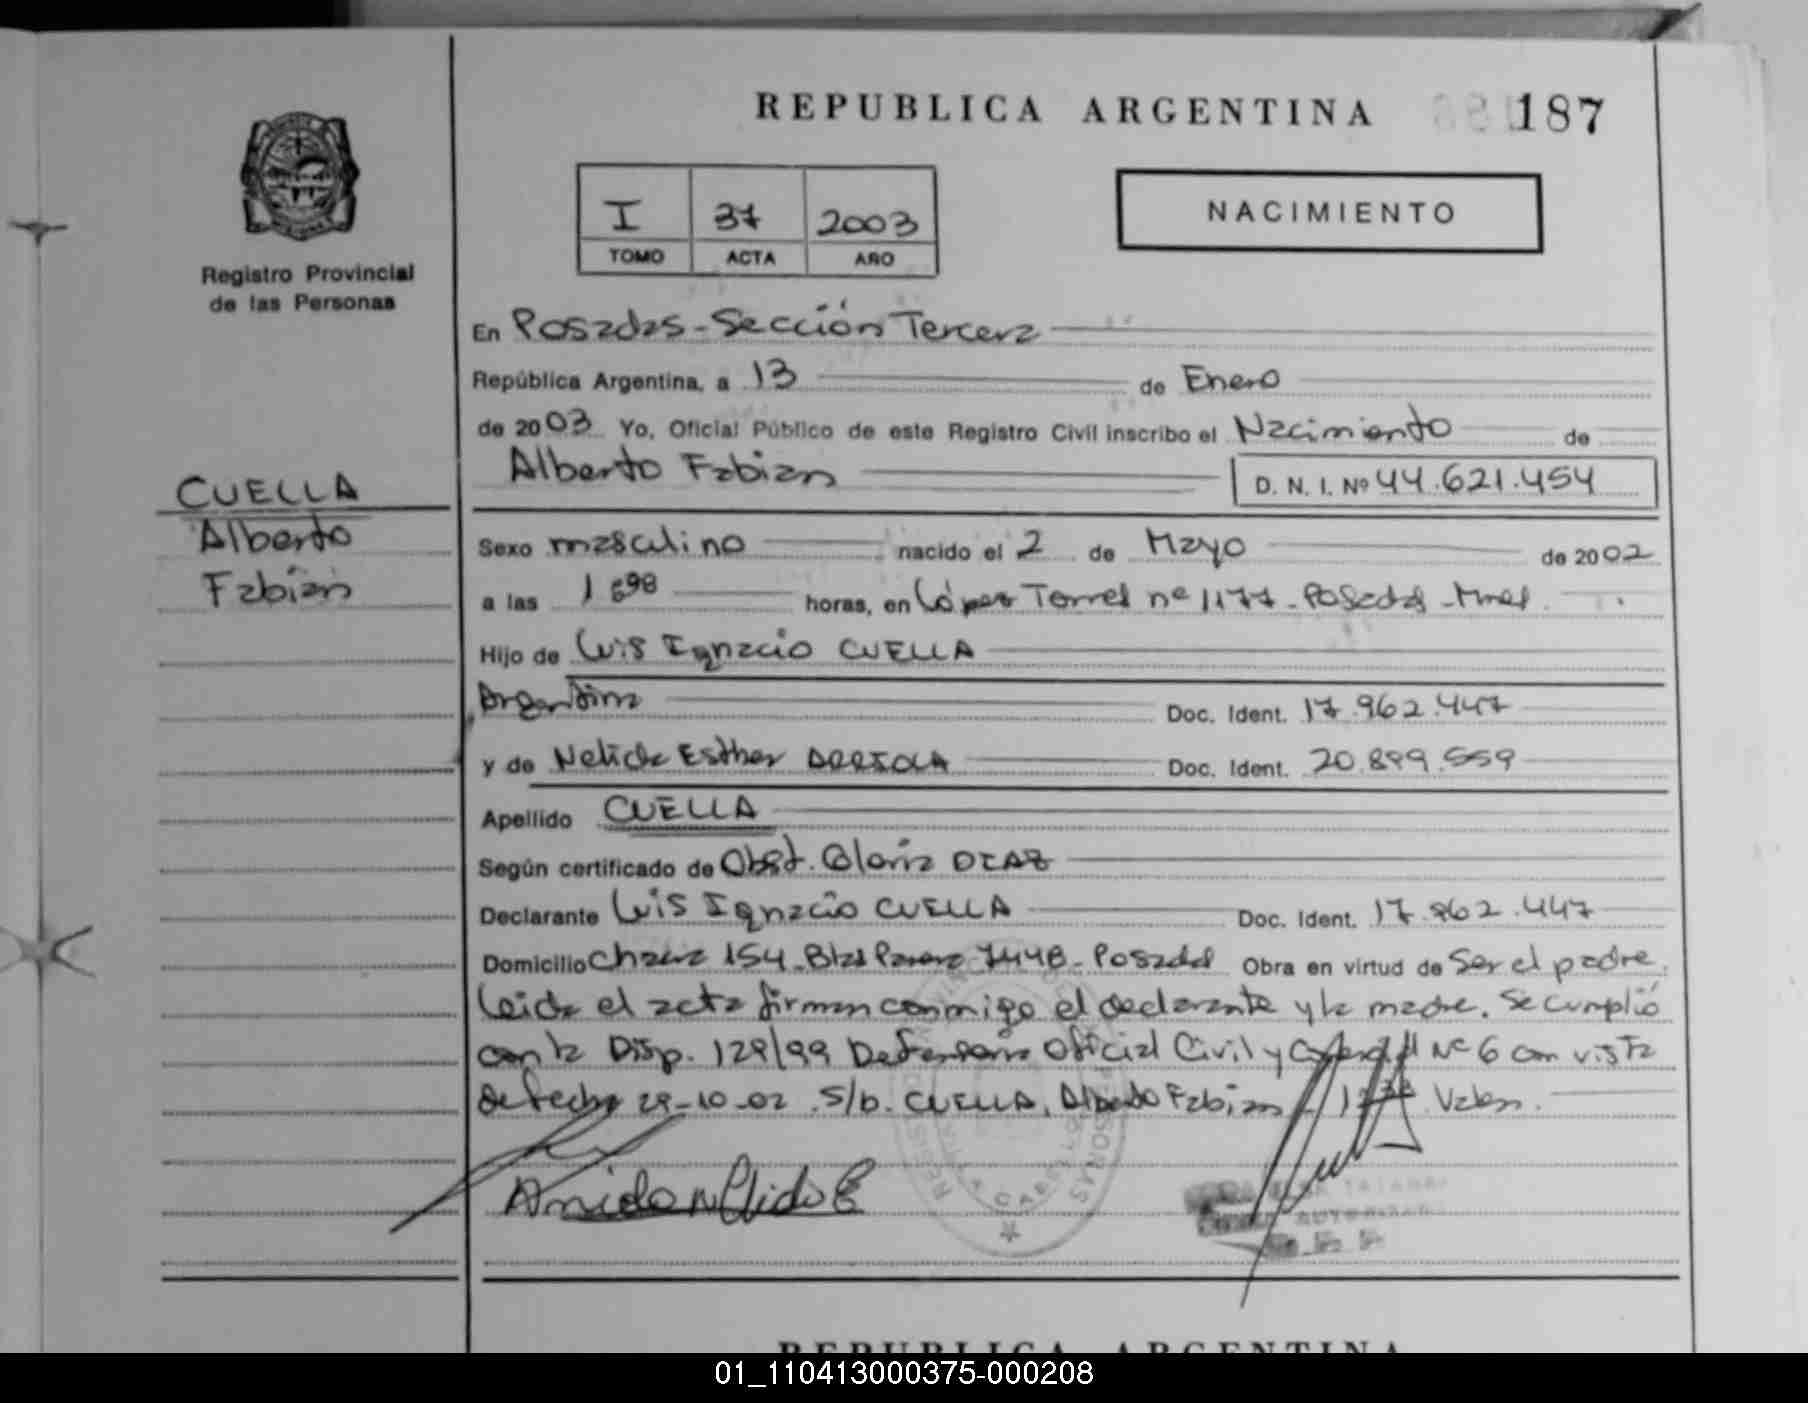 REPUBLICA ARGENTINA
187
I 37 2003
TOMO ACTA AÑO
NACIMIENTO
Registro Provincial
de las Personas
CUELLA
Alberto
Fabián
En Posadas - Sección Tercera
República Argentina, a 13 de Enero
de 2003 Yo, Oficial Público de este Registro Civil inscribo el Nacimiento de
Alberto Fabian D. N. I. Nº 44.621.454
Sexo masculino nacido el 2 de Mayo de 2002
a las horas, en López Torres nº 1177 - Posadas - Mnes.
Hijo de Luis Ignacio CUELLA
Argentina Doc. Ident. 17.962.447
y de Nelida Esther ARRIOLA Doc. Ident. 20.899.559
Apellido CUELLA
Según certificado de Obst. Gloria DIAZ
Declarante Luis Ignacio CUELLA Doc. Ident. 17.962.447
Domicilio 154 - Posadas Obra en virtud de Ser el padre.
Leida el acta firman conmigo el declarante y la madre. Se cumplió
con la Disp. 129/99 Defensoria Oficial Civil y Nº 6 con vista
de fecha 29-10-02 S/b. CUELLA, Alberto Fabian Valen.
REPUBLICA ARGENTINA
01_110413000375-000208